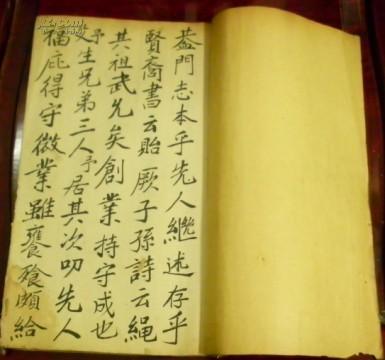 蓋門志本乎先人繼述存乎
賢裔書云貽厥子孫詩云繩
其祖武允矣創業持守成也
予父生兄弟三人予居其次叨先人
福庇得守微業雖饔飧頗給